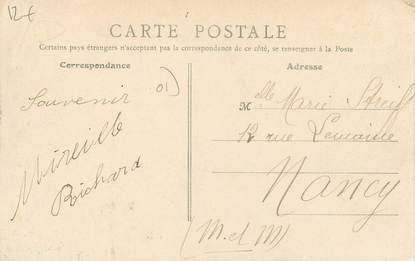 12€
CARTE POSTALE
Certains pays étrangers n'acceptant pas la correspondance de ce côté, se renseigner à la Poste
Correspondance
Adresse
Souvenir
01)
Mireille
Richard
Melle Marie Streif
12 rue Lemaire
Nancy
(M et M)